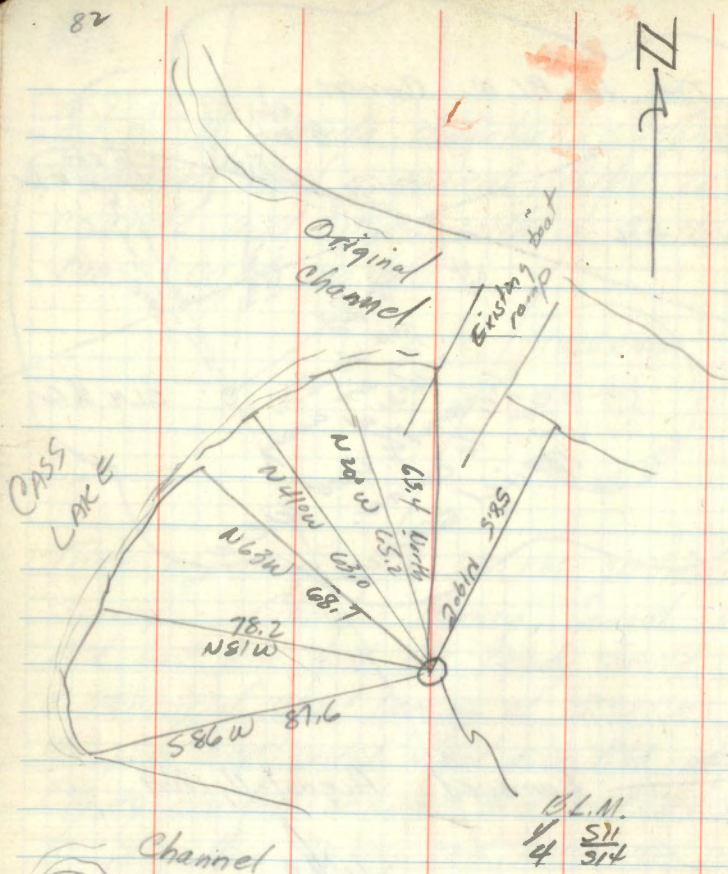 82
N
Original
Channel
Existing boat
ramp
CASS
LAKE
N20°W
65.2
63.4 North
N41°W 63.0
N63W 68.7
78.2
N81W
S86W 87.6
58.5
B.L.M.
1/4 S11
S14
Channel